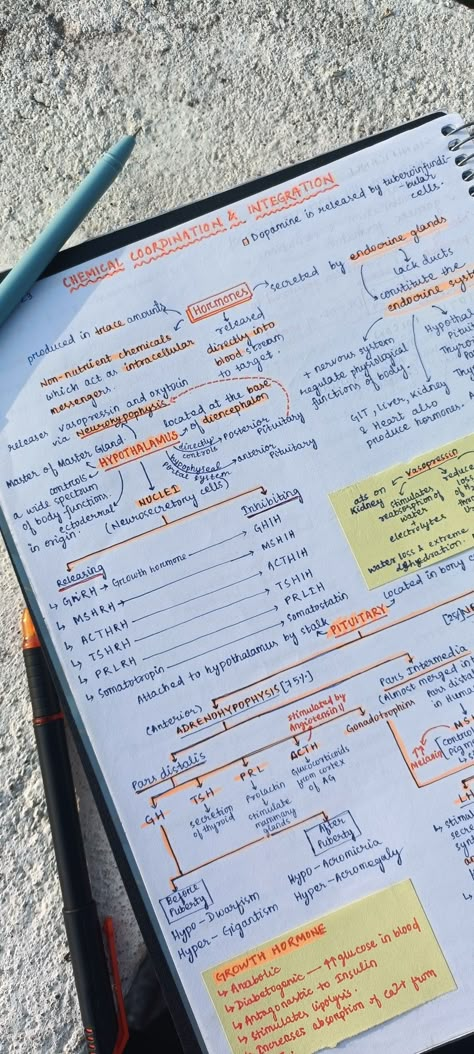 CHEMICAL COORDINATION & INTEGRATION
Dopamine is released by tuberoinfundi-
-bular
cells.
Hormones
secreted by endocrine glands
lack ducts
constitute the
endocrine syst
produced in trace amounts
Non-nutrient chemicals
which act as intracellular
messengers.
released
directly into
blood stream
to target.
+ nervous system
regulate physiological
functions of body.
GIT, liver, Kidney
& Heart also
produce hormones.
Hypothal
Pitui
Thyro
vasopressin and oxytoin
releases via Neurohypophysis
Master of Master Gland.
HYPOTHALAMUS
located at the base
of diencephalon
directly
controls
Posterior
Pituitary
hypophyseal
Portal system
anterior
Pituitary
controls
a wide spectrum
of body function.
ectodermal
in origin.
NUCLEI
(Neurosecretory cells)
Releasing
Inhibiting
GHRH → Growth hormone → GHIH
MSHRH → MSHIH
ACTHRH → ACTHIH
TSHRH → TSHIH
PRLRH → PRLIH
Somatotropin → somatostatin
Vasopressin
ats on
Kidney
stimulates
reabsorption of
water
+
electrolytes
reduc
loss
water loss & extreme
dehydration.
Attached to hypothalamus by stalk
PITUITARY
located in bony
(Anterior)
ADRENOHYPOPHYSIS [75%]
Pars distalis
Pars Intermedia
(Almost merged in
Pars dista
in Human
GH
TSH
secretion
of thyroid
PRL
Prolactin
stimulate
mammary
glands
stimulated by
Angiotensin II
ACTH
Glucocorticoids
from cortex
of AG
Gonadotrophins
Melanin
Before
Puberty
Hypo - Dwarfism
Hyper - Gigantism
After
Puberty
Hypo - Acromicria
Hyper - Acromegaly
GROWTH HORMONE
Anabolic
Diabetogenic — ↑↑ glucose in blood
Antagonastic to Insulin
stimulates lipolysis.
Increases absorption of Ca2+ from